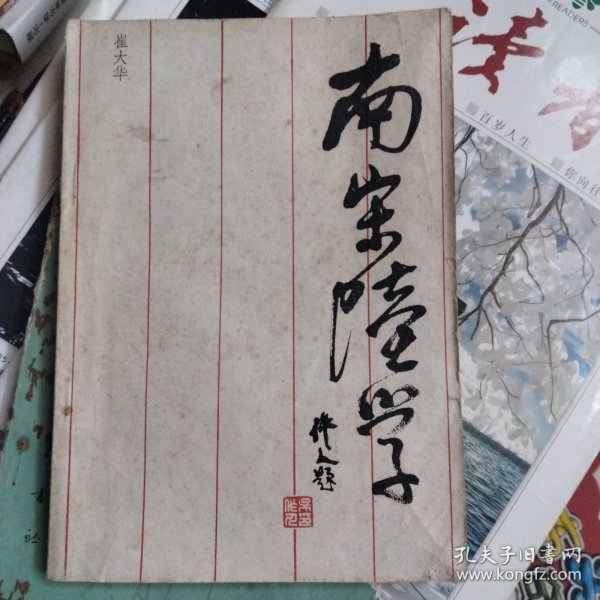 崔大华
南宋陸学
作人题
READERS
百岁人生
你向往
社
孔夫子旧书网
www.kongfz.com